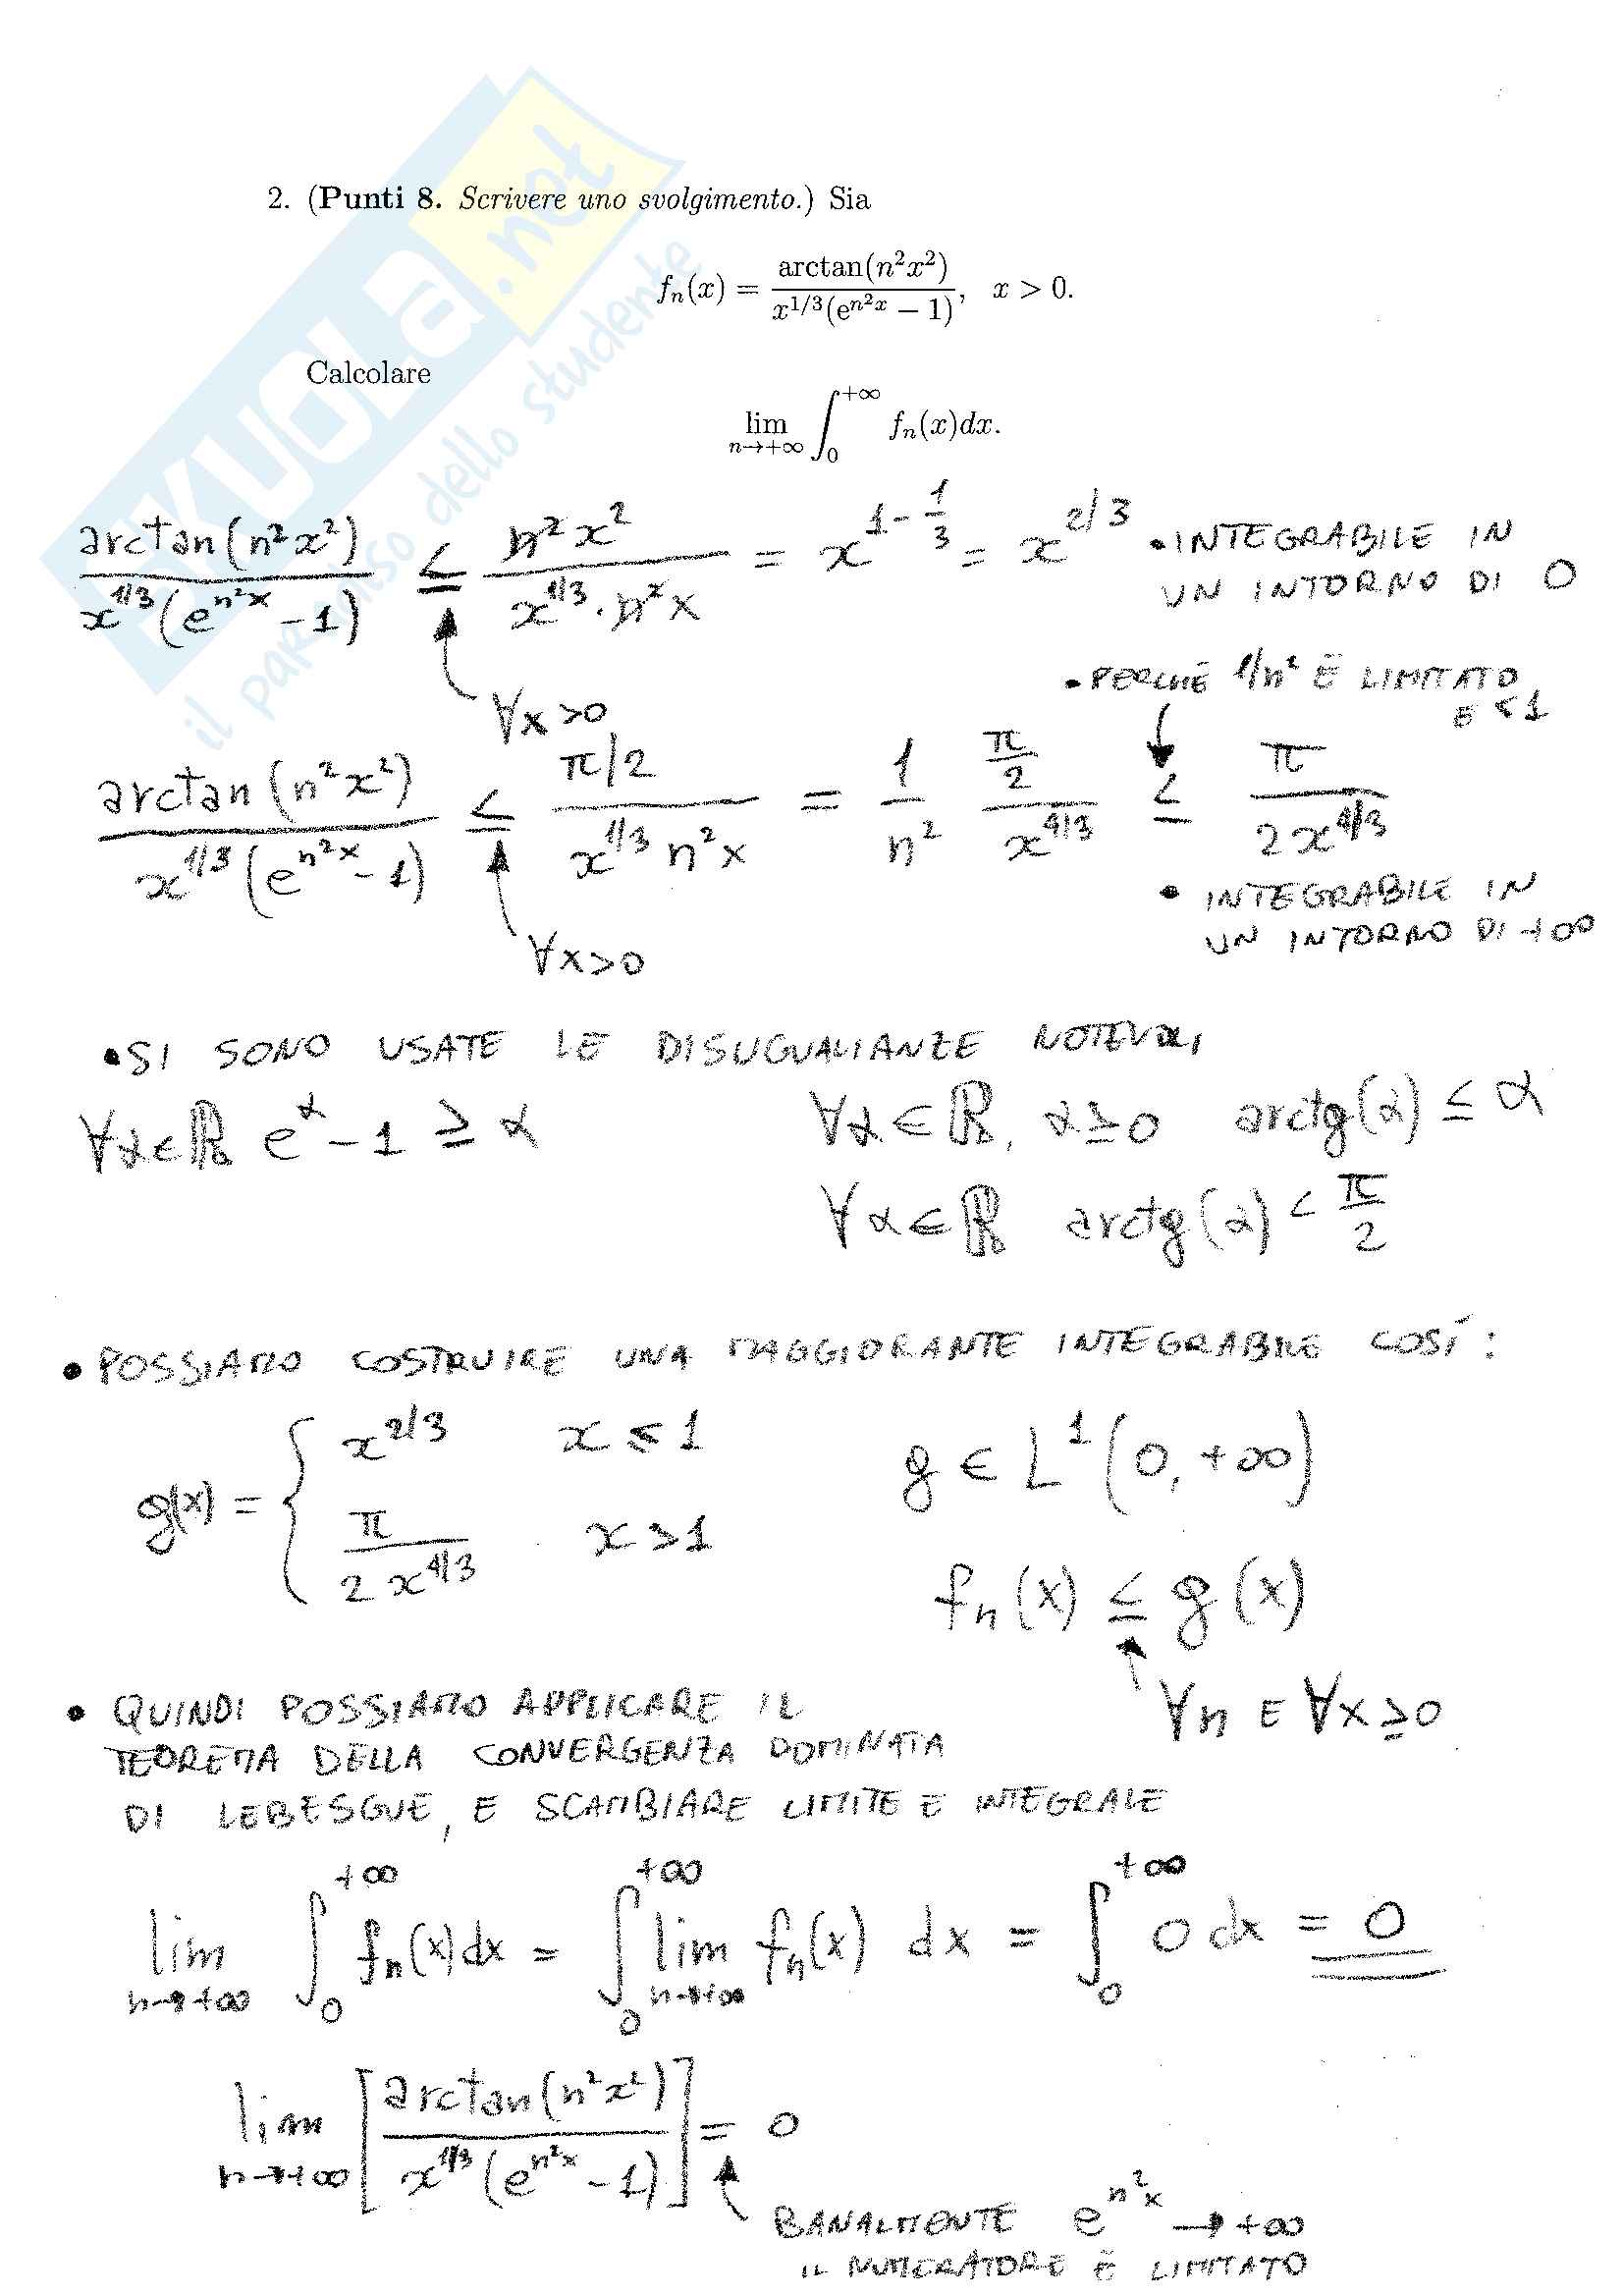 SKUOLA.net
il paradiso dello studente
2. (Punti 8. Scrivere uno svolgimento.) Sia
fₙ(x) = arctan(n²x²) / (x^{1/3}(e^{n²x} − 1)), x > 0.
Calcolare
lim_{n→+∞} ∫₀^{+∞} fₙ(x)dx.
arctan(n²x²) / (x^{1/3}(e^{n²x} − 1)) ≤ n²x² / (x^{1/3} · n²x) = x^{1−1/3} = x^{2/3} • INTEGRABILE IN
UN INTORNO DI 0
∀x>0
• PERCHÉ 1/n² È LIMITATO
E ≤ 1
arctan(n²x²) / (x^{1/3}(e^{n²x} − 1)) ≤ π/2 / (x^{1/3} n²x) = 1/n² · (π/2) / x^{4/3} ≤ π / (2x^{4/3})
∀x>0
• INTEGRABILE IN
UN INTORNO DI +∞
• SI SONO USATE LE DISUGUALIANZE NOTEVOLI
∀α∈ℝ e^α − 1 ≥ α ∀α∈ℝ, α≥0 arctg(α) ≤ α
∀α∈ℝ arctg(α) < π/2
• POSSIAMO COSTRUIRE UNA MAGGIORANTE INTEGRABILE COSÍ:
g(x) = { x^{2/3} x ≤ 1
π / (2x^{4/3}) x > 1
g ∈ L¹(0,+∞)
fₙ(x) ≤ g(x)
∀n E ∀x≥0
• QUINDI POSSIAMO APPLICARE IL
TEOREMA DELLA CONVERGENZA DOMINATA
DI LEBESGUE, E SCAMBIARE LIMITE E INTEGRALE
lim_{n→+∞} ∫₀^{+∞} fₙ(x)dx = ∫₀^{+∞} lim_{n→+∞} fₙ(x) dx = ∫₀^{+∞} 0 dx = 0
lim_{n→+∞} [arctan(n²x²) / (x^{1/3}(e^{n²x} − 1))] = 0
BANALMENTE e^{n²x} → +∞
IL NUMERATORE È LIMITATO